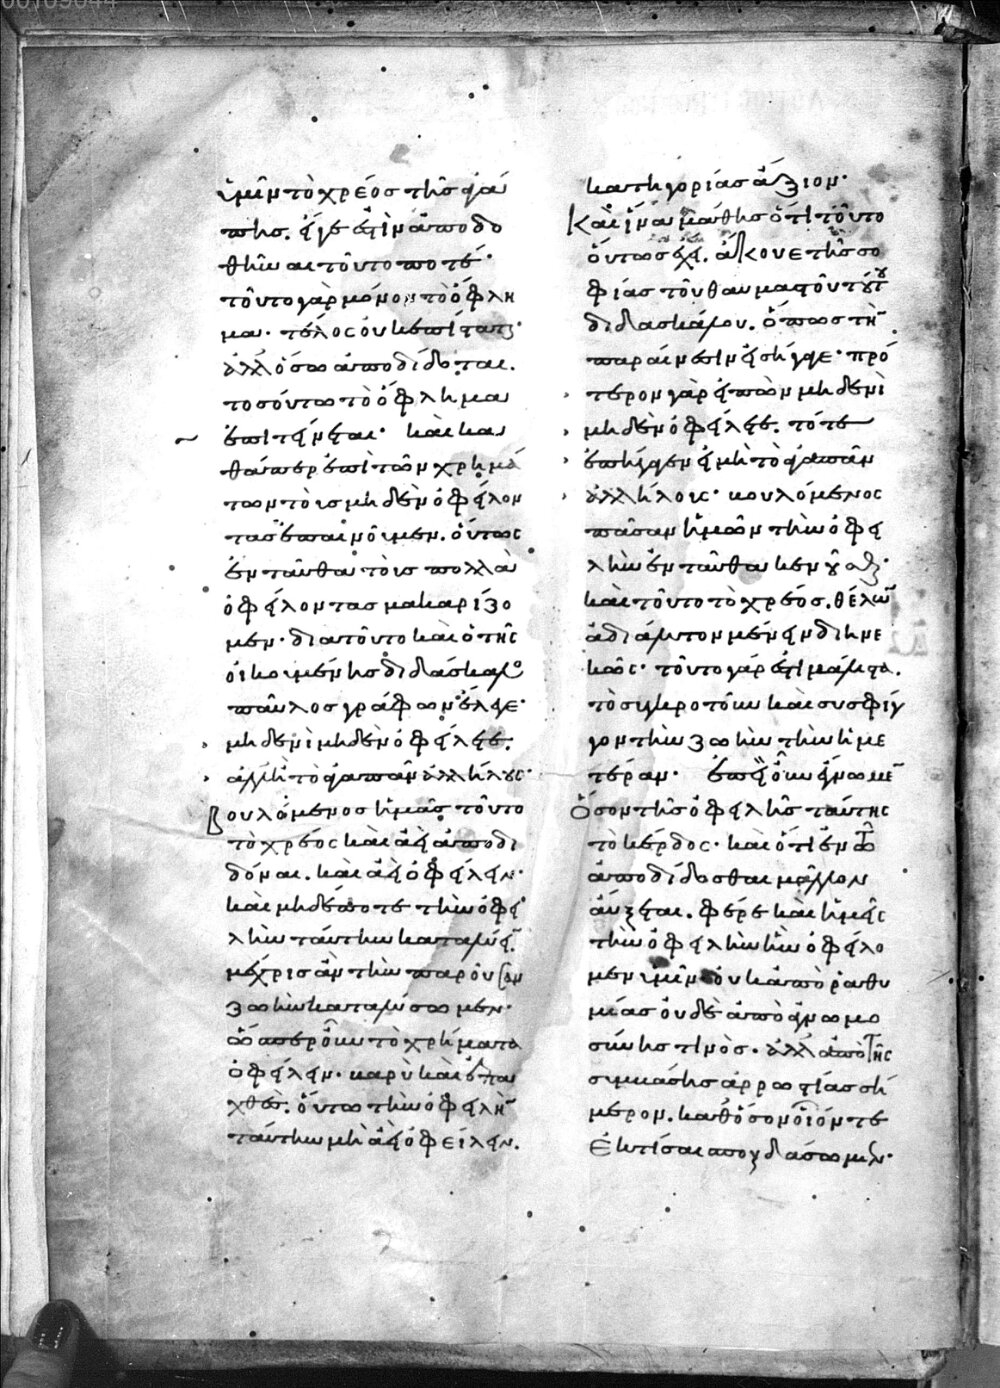 ὑμῖν τὸ χρέος τῆς ἀγά
πης. εἴγε ἔστιν ἀποδο
θῆναι τοῦτο ποτέ·
τοῦτο γὰρ μόνον τὸ ὄφλη
μα· τέλος οὐκ ἐπίσταται·
ἀλλ' ὅσω ἀποδίδοται.
τοσούτω τὸ ὄφλημα
ἐπιτείνεται· καὶ κα
θάπερ ἐπὶ τῶν χρημά
των τοῖς μηδὲν ὀφείλον
τας ἐπαινοῦμεν. οὕτως
ἐνταῦθα τοῖς πολλὰ
ὀφείλοντας μακαρίζο
μεν· διατοῦτο καὶ ὁ τῆς
οἰκουμένης διδάσκαλος
παῦλος γράφων ἔλεγε·
μηδενὶ μηδὲν ὀφείλετε.
εἰ μὴ τὸ ἀγαπᾶν ἀλλήλους·
βουλόμενος ἡμᾶς τοῦτο
τὸ χρέος καὶ ἀεὶ ἀποδι
δόναι. καὶ ἀεὶ ὀφείλειν·
καὶ μηδέποτε τὴν ὀφει
λὴν ταύτην καταλύειν
μέχρις ἂν τὴν παροῦσαν
ζωὴν καταλύσωμεν·
ὥσπερ οὖν τὸ χρήματα
ὀφείλειν. βαρὺ καὶ ἐπα
χθές. οὕτω τὴν ὀφειλὴν
ταύτην μὴ ἀεὶ ὀφείλειν.
κατηγορίας ἄξιον·
Καὶ ἵνα μάθης ὅτι τοῦτο
οὕτως ἔχει. ἄκουε τῆς σο
φίας τοῦ θαυμαστοῦ τούτου
διδασκάλου. ὅπως τὴν
παραίνεσιν εἰσήγαγε· πρό
τερον γὰρ εἰπὼν μηδενὶ
μηδὲν ὀφείλετε. τότε
ἐπήγαγεν εἰ μὴ τὸ ἀγαπᾶν
ἀλλήλοις· βουλόμενος
πᾶσαν ἡμῶν τὴν ὀφει
λὴν ἐνταῦθα κενοῦσθαι·
καὶ τοῦτο τὸ χρέος. θέλων
ἀδιάλυτον μένειν διηνε
κῶς· τοῦτο γάρ ἐστι μάλιστα.
τὸ συγκροτοῦν καὶ συσφίγ
γον τὴν ζωὴν τὴν ἡμε
τέραν· ἐπεὶ οὖν ἔγνωμεν
ὅσον τῆς ὀφειλῆς ταύτης
τὸ κέρδος· καὶ ὅτι ἐν τῶ
ἀποδίδοσθαι μᾶλλον
αὔξεται. φέρε καὶ ἡμεῖς
τὴν ὀφειλὴν ἣν ὀφείλο
μεν ὑμῖν οὐκ ἀπὸ ῥαθυ
μίας οὐδὲ ἀπὸ ἀγνωμο
σύνης τινὸς. ἀλλ' ἀπὸ τῆς
συμβάσης ἀρρωστίας σή
μερον. καθόσον οἷόν τε
ἐκτίσαι σπουδάσωμεν·